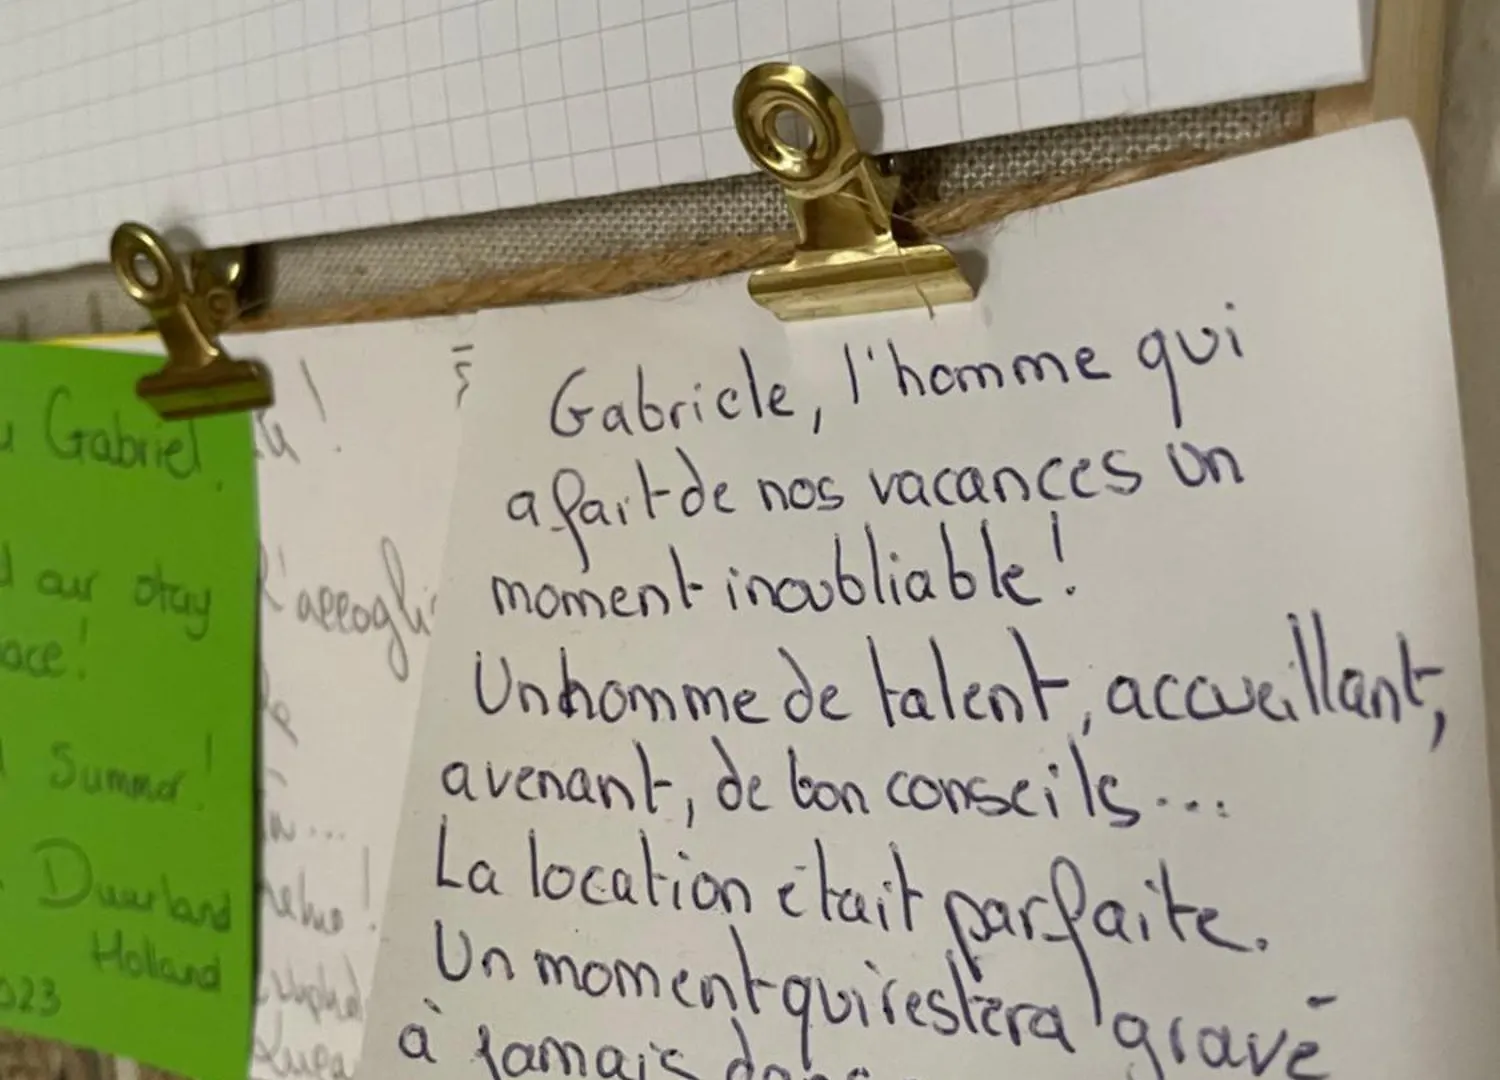 Gabriel
our stay
Summer!
Duurland
Holland
023
Gabriele, l'homme qui
a fait de nos vacances un
moment inoubliable !
Un homme de talent, accueillant,
avenant, de bon conseils...
La location était parfaite.
Un moment qui restera gravé
à jamais dans